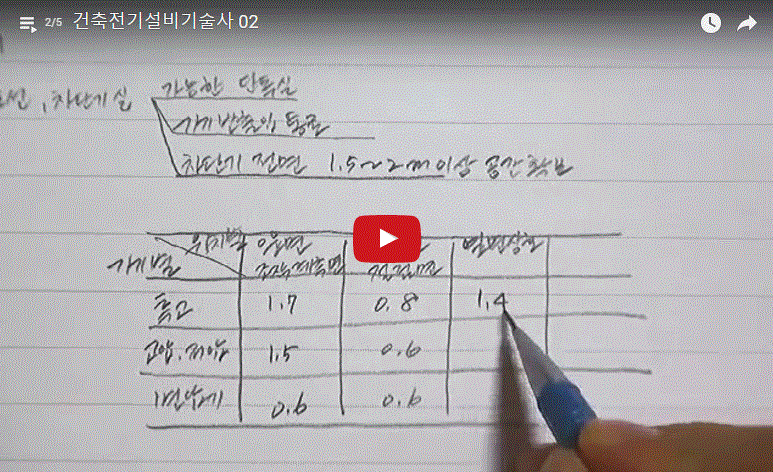 2/5 건축전기설비기술사 02
, 차단기실 가능한 단독실
기기반출입 통로
차단기 전면 1.5~2m이상 공간확보
위치별
기기별
열면상호
특고 1.7 0.8 1.4
고압.저압 1.5 0.6
0.6 0.6